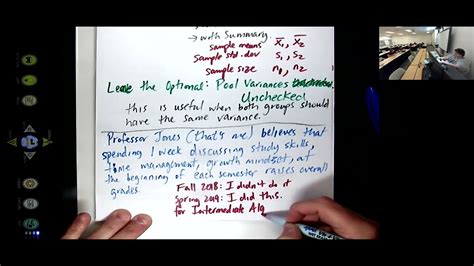 → with Summary.
sample means x̄₁, x̄₂
Sample std. dev s₁, s₂
sample size n₁, n₂
Leave the Optional: Pool Variances
Unchecked
this is useful when both groups should
have the same variance.
Professor Jones (that's me) believes that
spending 1 week discussing study skills,
time management, growth mindset, at
the beginning of each semester raises overall
grades.
Fall 2018: I didn't do it
Spring 2019: I did this.
for Intermediate Alg